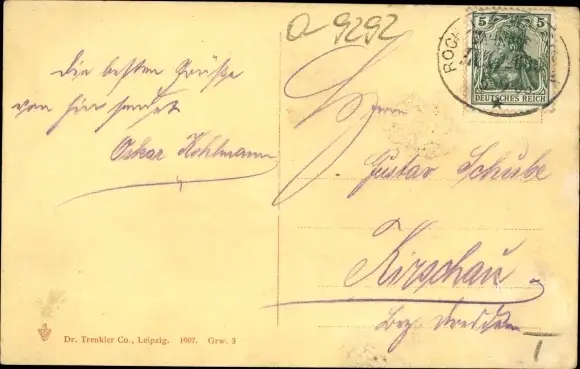 O-9292
5 5
DEUTSCHES REICH
ROCH
die besten Grüße
von hier sendet
Oskar Kohlmann
Herrn
Gustav Schube
Kirschau
Bez. Dresden
I
Dr. Trenkler Co., Leipzig. 1907. Grw. 3